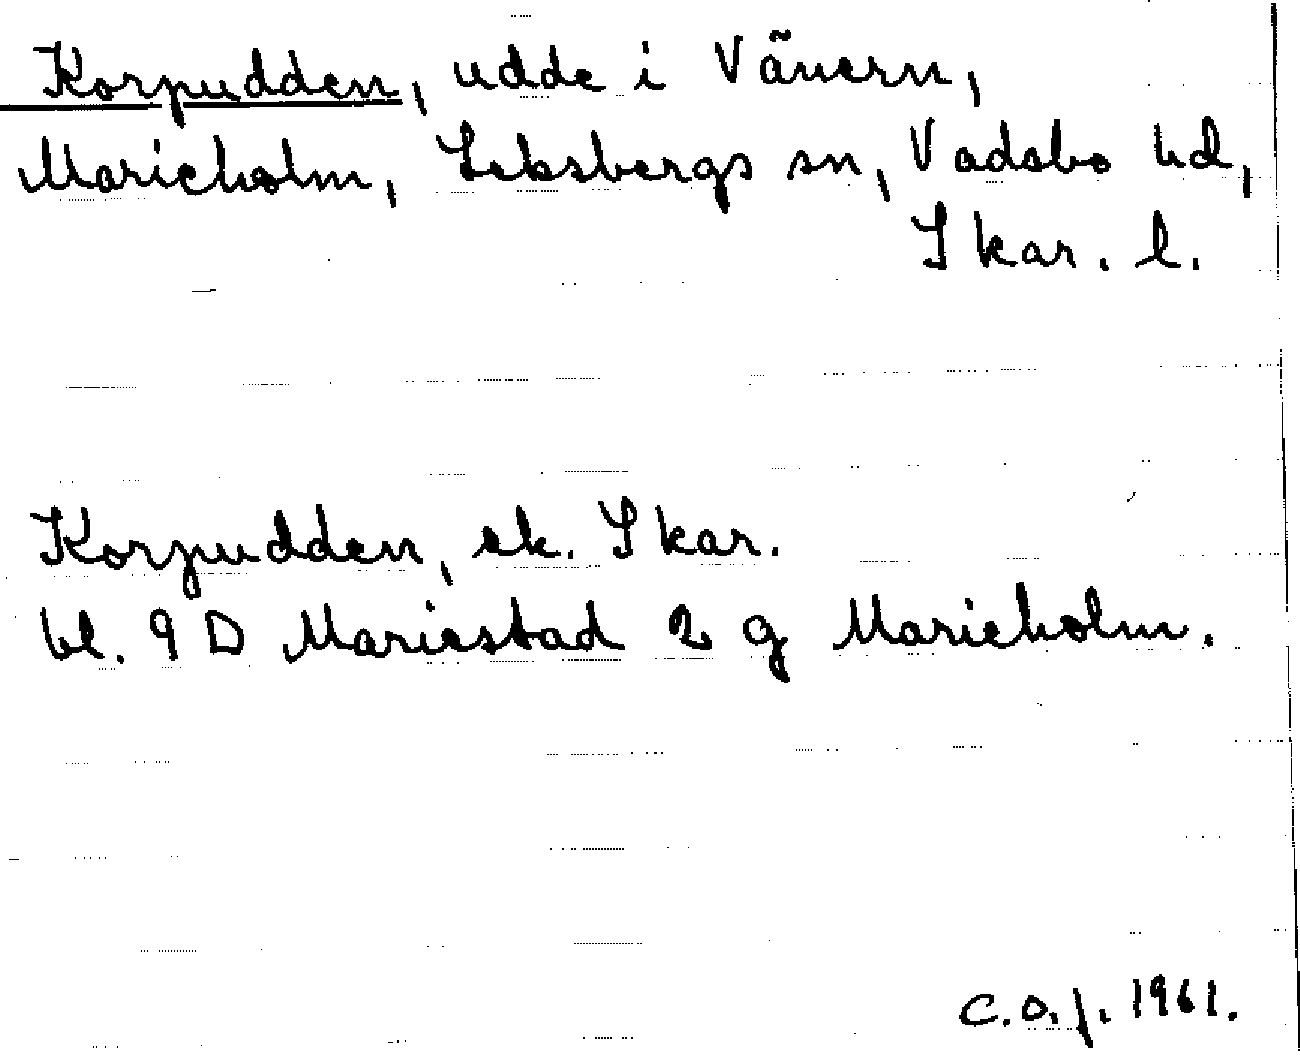 Korpudden, udde i Vänern,
Marieholm, Leksbergs sn, Vadsbo hd,
Skar. l.
Korpudden, ek. Skar.
bl. 9 D Mariestad 2 g Marieholm.
C.O.f. 1961.